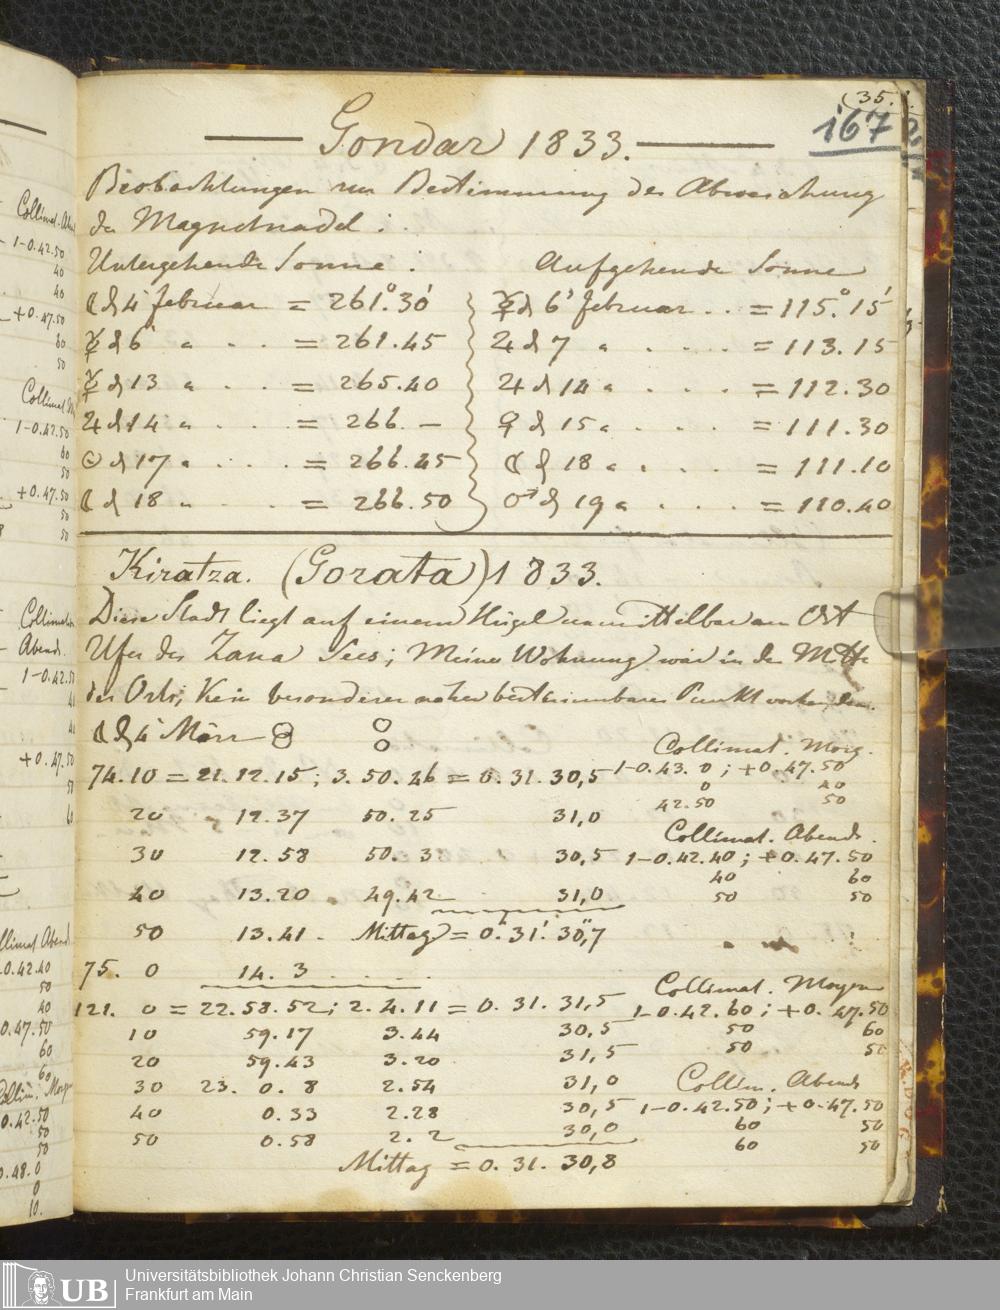 (35.)
167
Gondar 1833.
Beobachtungen zur Bestimmung der Abweichung
der Magnetnadel:
Untergehende Sonne. Aufgehende Sonne
☾ d 4 Februar = 261.°30' ☿ d 6' Februar . . = 115.°15'
☿ d 6 " . . . = 261.45 ♃ d 7 " . . . . = 113.15
☿ d 13 " . . . = 265.40 ♃ d 14 " . . . . = 112.30
♃ d 14 " . . . = 266. — ♀ d 15 " . . . . = 111.30
☉ d 17 " . . . = 266.45 ☾ d 18 " . . . . = 111.10
☾ d 18 " . . . = 266.50 ♂ d 19 " . . . = 110.40
Kiratza. (Gorata) 1833.
Diese Stadt liegt auf einem Hügel unmittelbar am Ost
Ufer des Zana Sees; Meine Wohnung war in der Mitte
des Orts; Kein besonderer naher bestimmbarer Punkt vorhanden.
☾ d 4 März
Collimat. Morg.
74.10 = 21.12.15; 3.50.46 = 0.31.30,5 1-0.43.0; +0.47.50
0 40
20 12.37 50.25 31,0 42.50 50
Collimat. Abends.
30 12.58 50.3 30,5 1-0.42.40; +0.47.50
40 60
40 13.20 49.42 31,0 50 50
50 13.41 . Mittag = 0.h31.'30,"7
75. 0 14. 3 . . . . .
Collimat. Morgens
121. 0 = 22.58.52; 2.4.11 = 0.31.31,5 1-0.42.60; +0.47.50
10 59.17 3.44 30,5 50 60
20 59.43 3.20 31,5 50 50
30 23. 0. 8 2.54 31,0 Collim. Abends
40 0.33 2.28 30,5 1-0.42.50; +0.47.50
50 0.58 2. 2 30,0 60 50
60 50
Mittag = 0.31.30,8
Collimat. Abend
1-0.42.50
40
40
+0.47.50
60
50
Collimat
1-0.42.50
60
50
+0.47.50
50
50
Abends.
UB
Universitätsbibliothek Johann Christian Senckenberg
Frankfurt am Main